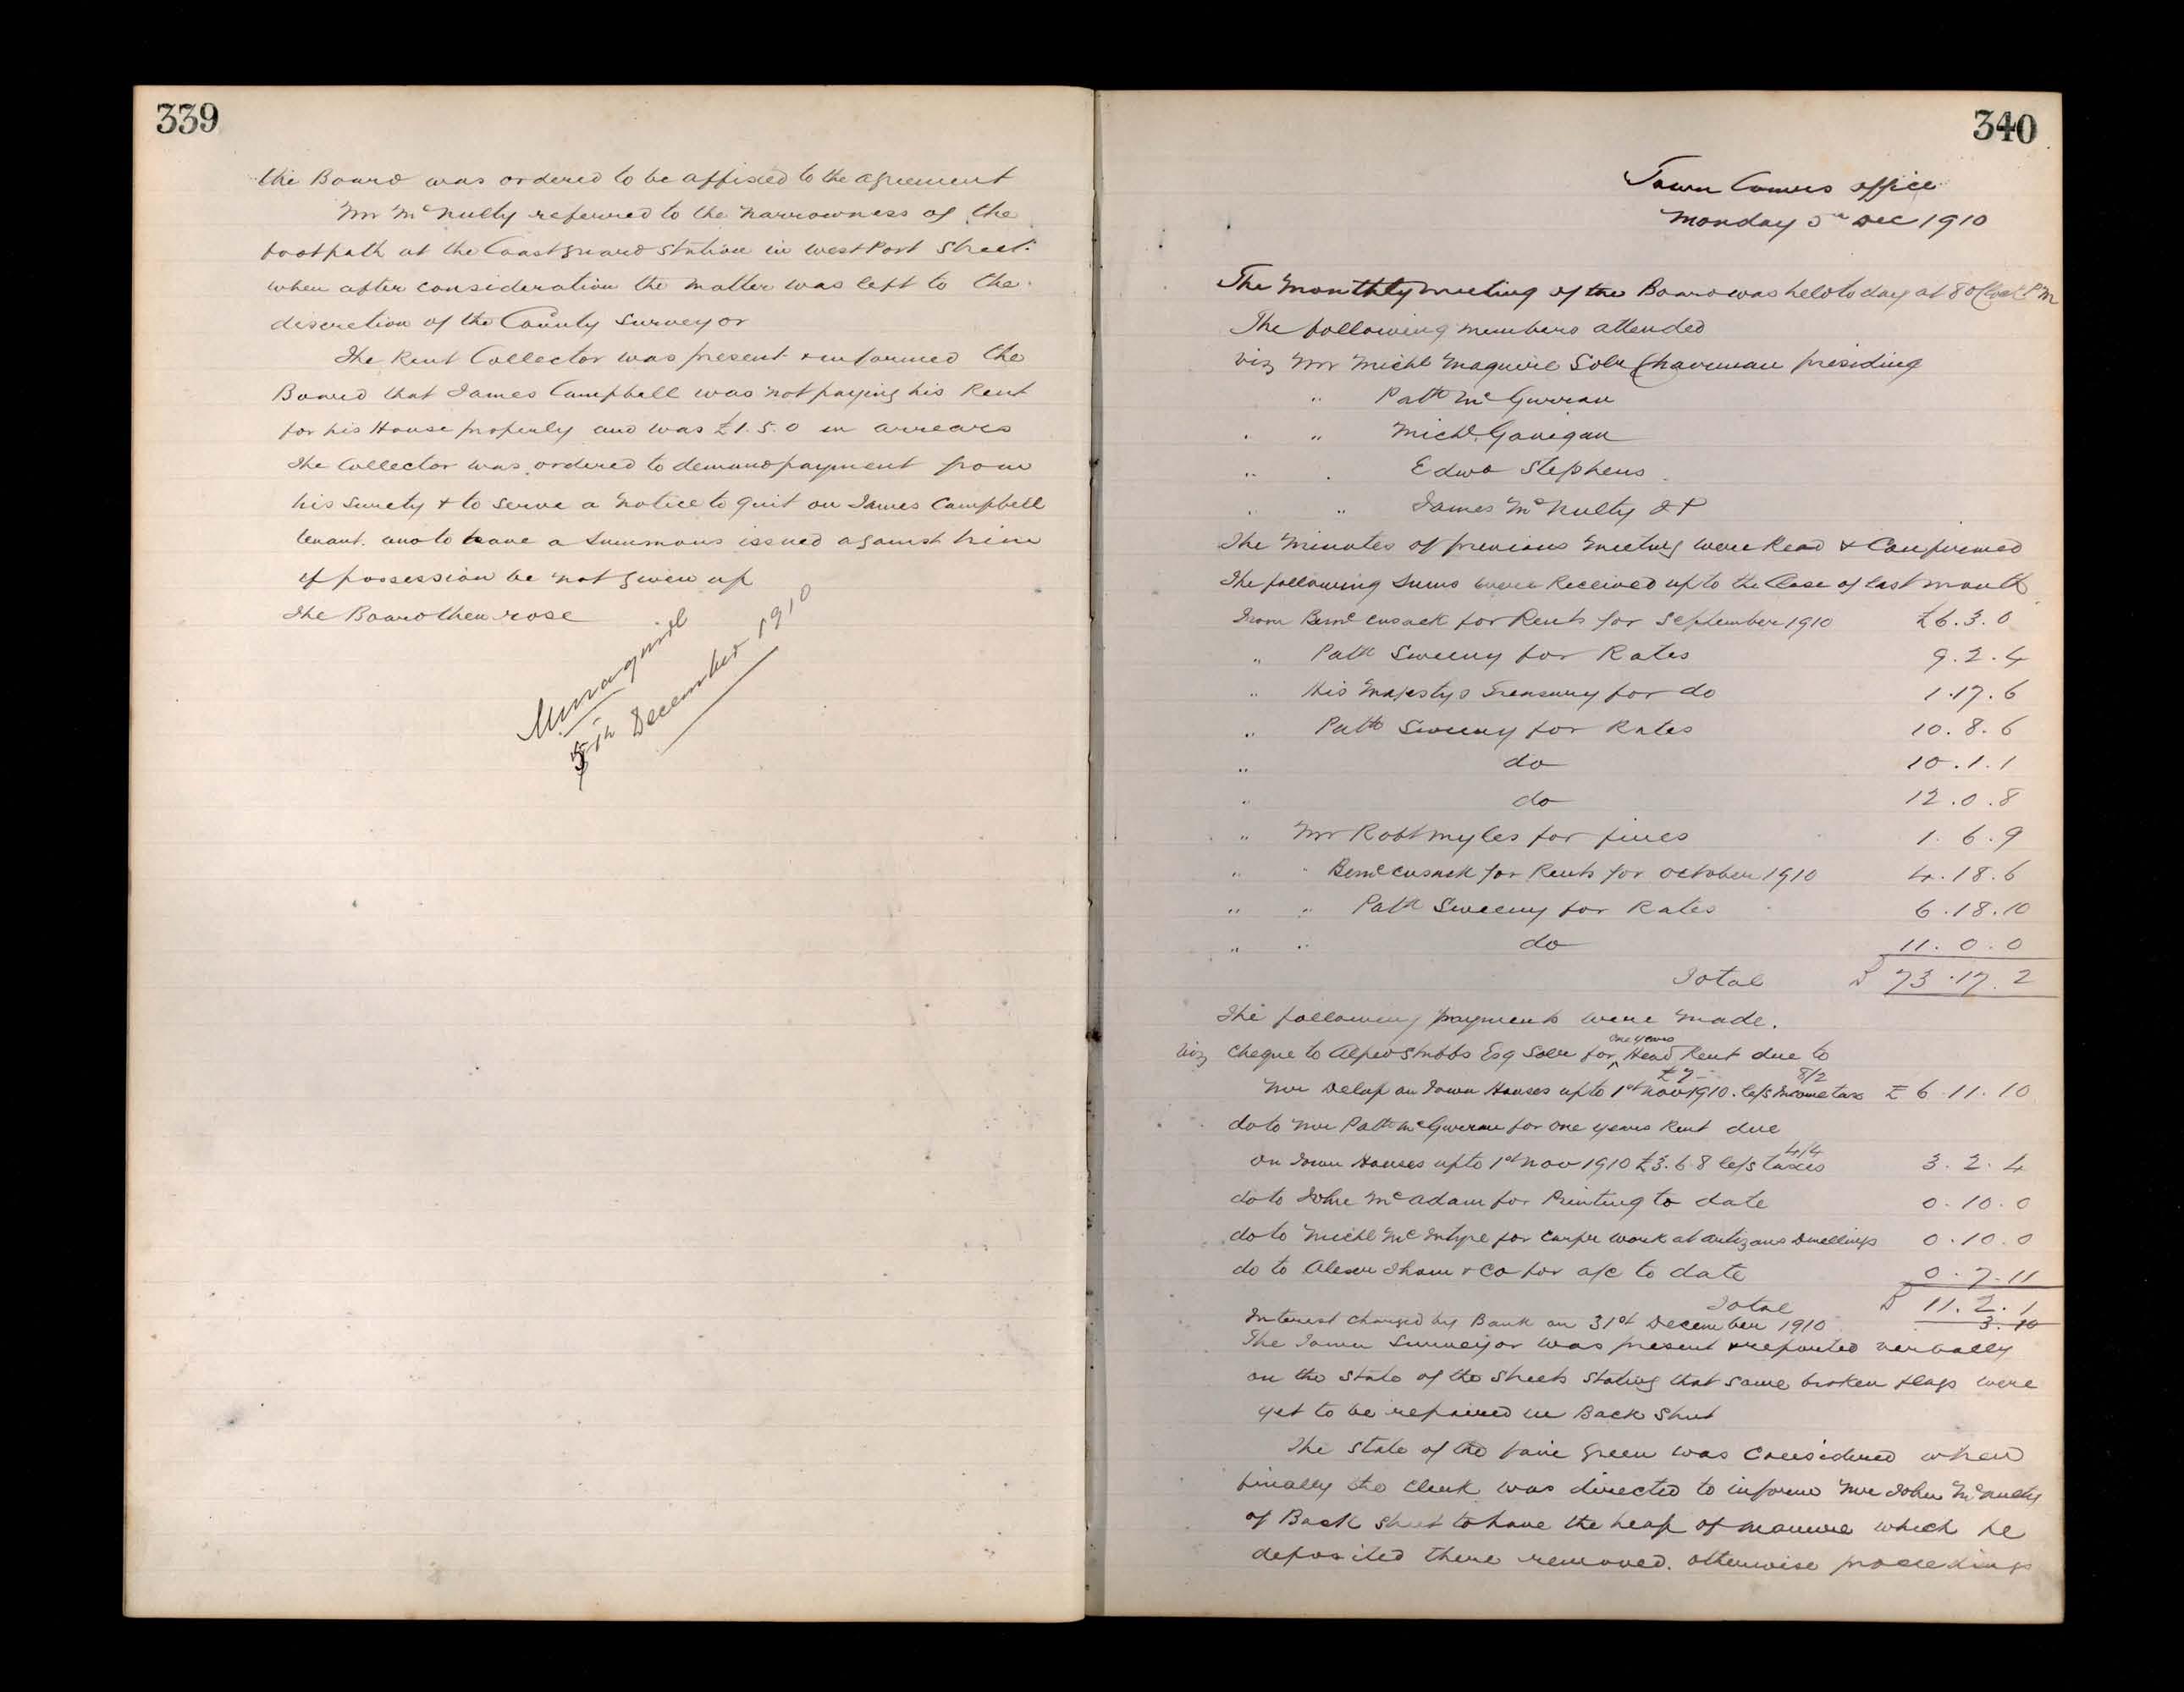 339
the Board was ordered to be affixed to the agreement
Mr McNulty referred to the narrowness of the
footpath at the Coastguard Station in West Port Street.
when after consideration the matter was left to the
discretion of the County Surveyor
The Rent Collector was present & informed the
Board that James Campbell was not paying his Rent
for his House properly and was £1.5.0 in arrears
The Collector was ordered to demand payment from
his Surety & to serve a notice to quit on James Campbell
tenant. and to have a Summons issued against him
if possession be not given up
The Board then rose
MMaguire
5th December 1910
340
Town Comrs office
Monday 5th Dec 1910
The Monthly meeting of the Board was held to day at 8 oClock P M
The following members attended
viz Mr Michl Maguire Solr Chairman presiding
" Patk McGurran
" " Michl Gavigan
" " Edwd Stephens
" " James McNulty J P
The Minutes of previous meeting were Read & Confirmed
The following Sums were Received up to the Close of last month
From Bernd Cusack for Rents for September 1910 £6.3.0
" Patk Sweeny for Rates 9.2.4
" His Majestys Treasury for do 1.17.6
" Patk Sweeny for Rates 10.8.6
" do 10.1.1
" do 12.0.8
" Mr Robt Myles for fines 1.6.9
" " Bernd Cusack for Rents for October 1910 4.18.6
" " Patk Sweeny for Rates 6.18.10
" " do 11.0.0
Total £ 73.17.2
The following payments were made.
viz Cheque to Alfred Stubbs Esq Solr for one years Head Rent due to
Mr Delap on Town Houses up to 1st Nov 1910 £7 - - less Income tax 8/2 £6.11.10
do to Mr Patk McGurran for one years Rent due
on Town Houses up to 1st Nov 1910 £3.6.8 less taxes 4/4 3.2.4
do to John McAdam for Printing to date 0.10.0
do to Michl McIntyre for Carpr work at Artizans Dwellings 0.10.0
do to Alexr Thom & Co for a/c to date 0.7.11
Total £ 11.2.1
Interest charged by Bank on 31st December 1910 3.10
The Town Surveyor was present & reported verbally
on the State of the Streets Stating that some broken flags were
yet to be repaired in Back Street
The State of the fair Green was Considered when
finally the Clerk was directed to inform Mr John McNulty
of Back Street to have the heap of manure which he
deposited there removed. otherwise proceedings